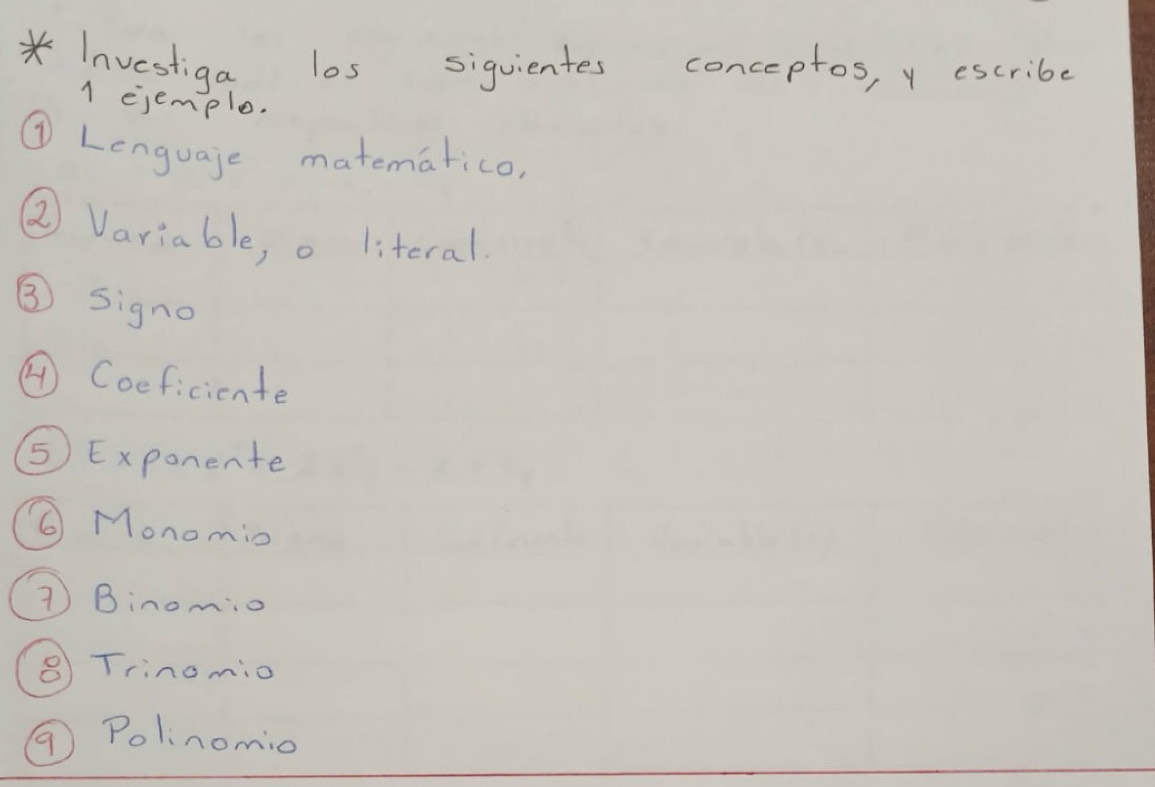 * Investiga los siguientes conceptos, y escribe
1 ejemplo.
① Lenguaje matemático,
② Variable, o literal.
③ Signo
④ Coeficiente
⑤ Exponente
⑥ Monomio
⑦ Binomio
⑧ Trinomio
⑨ Polinomio